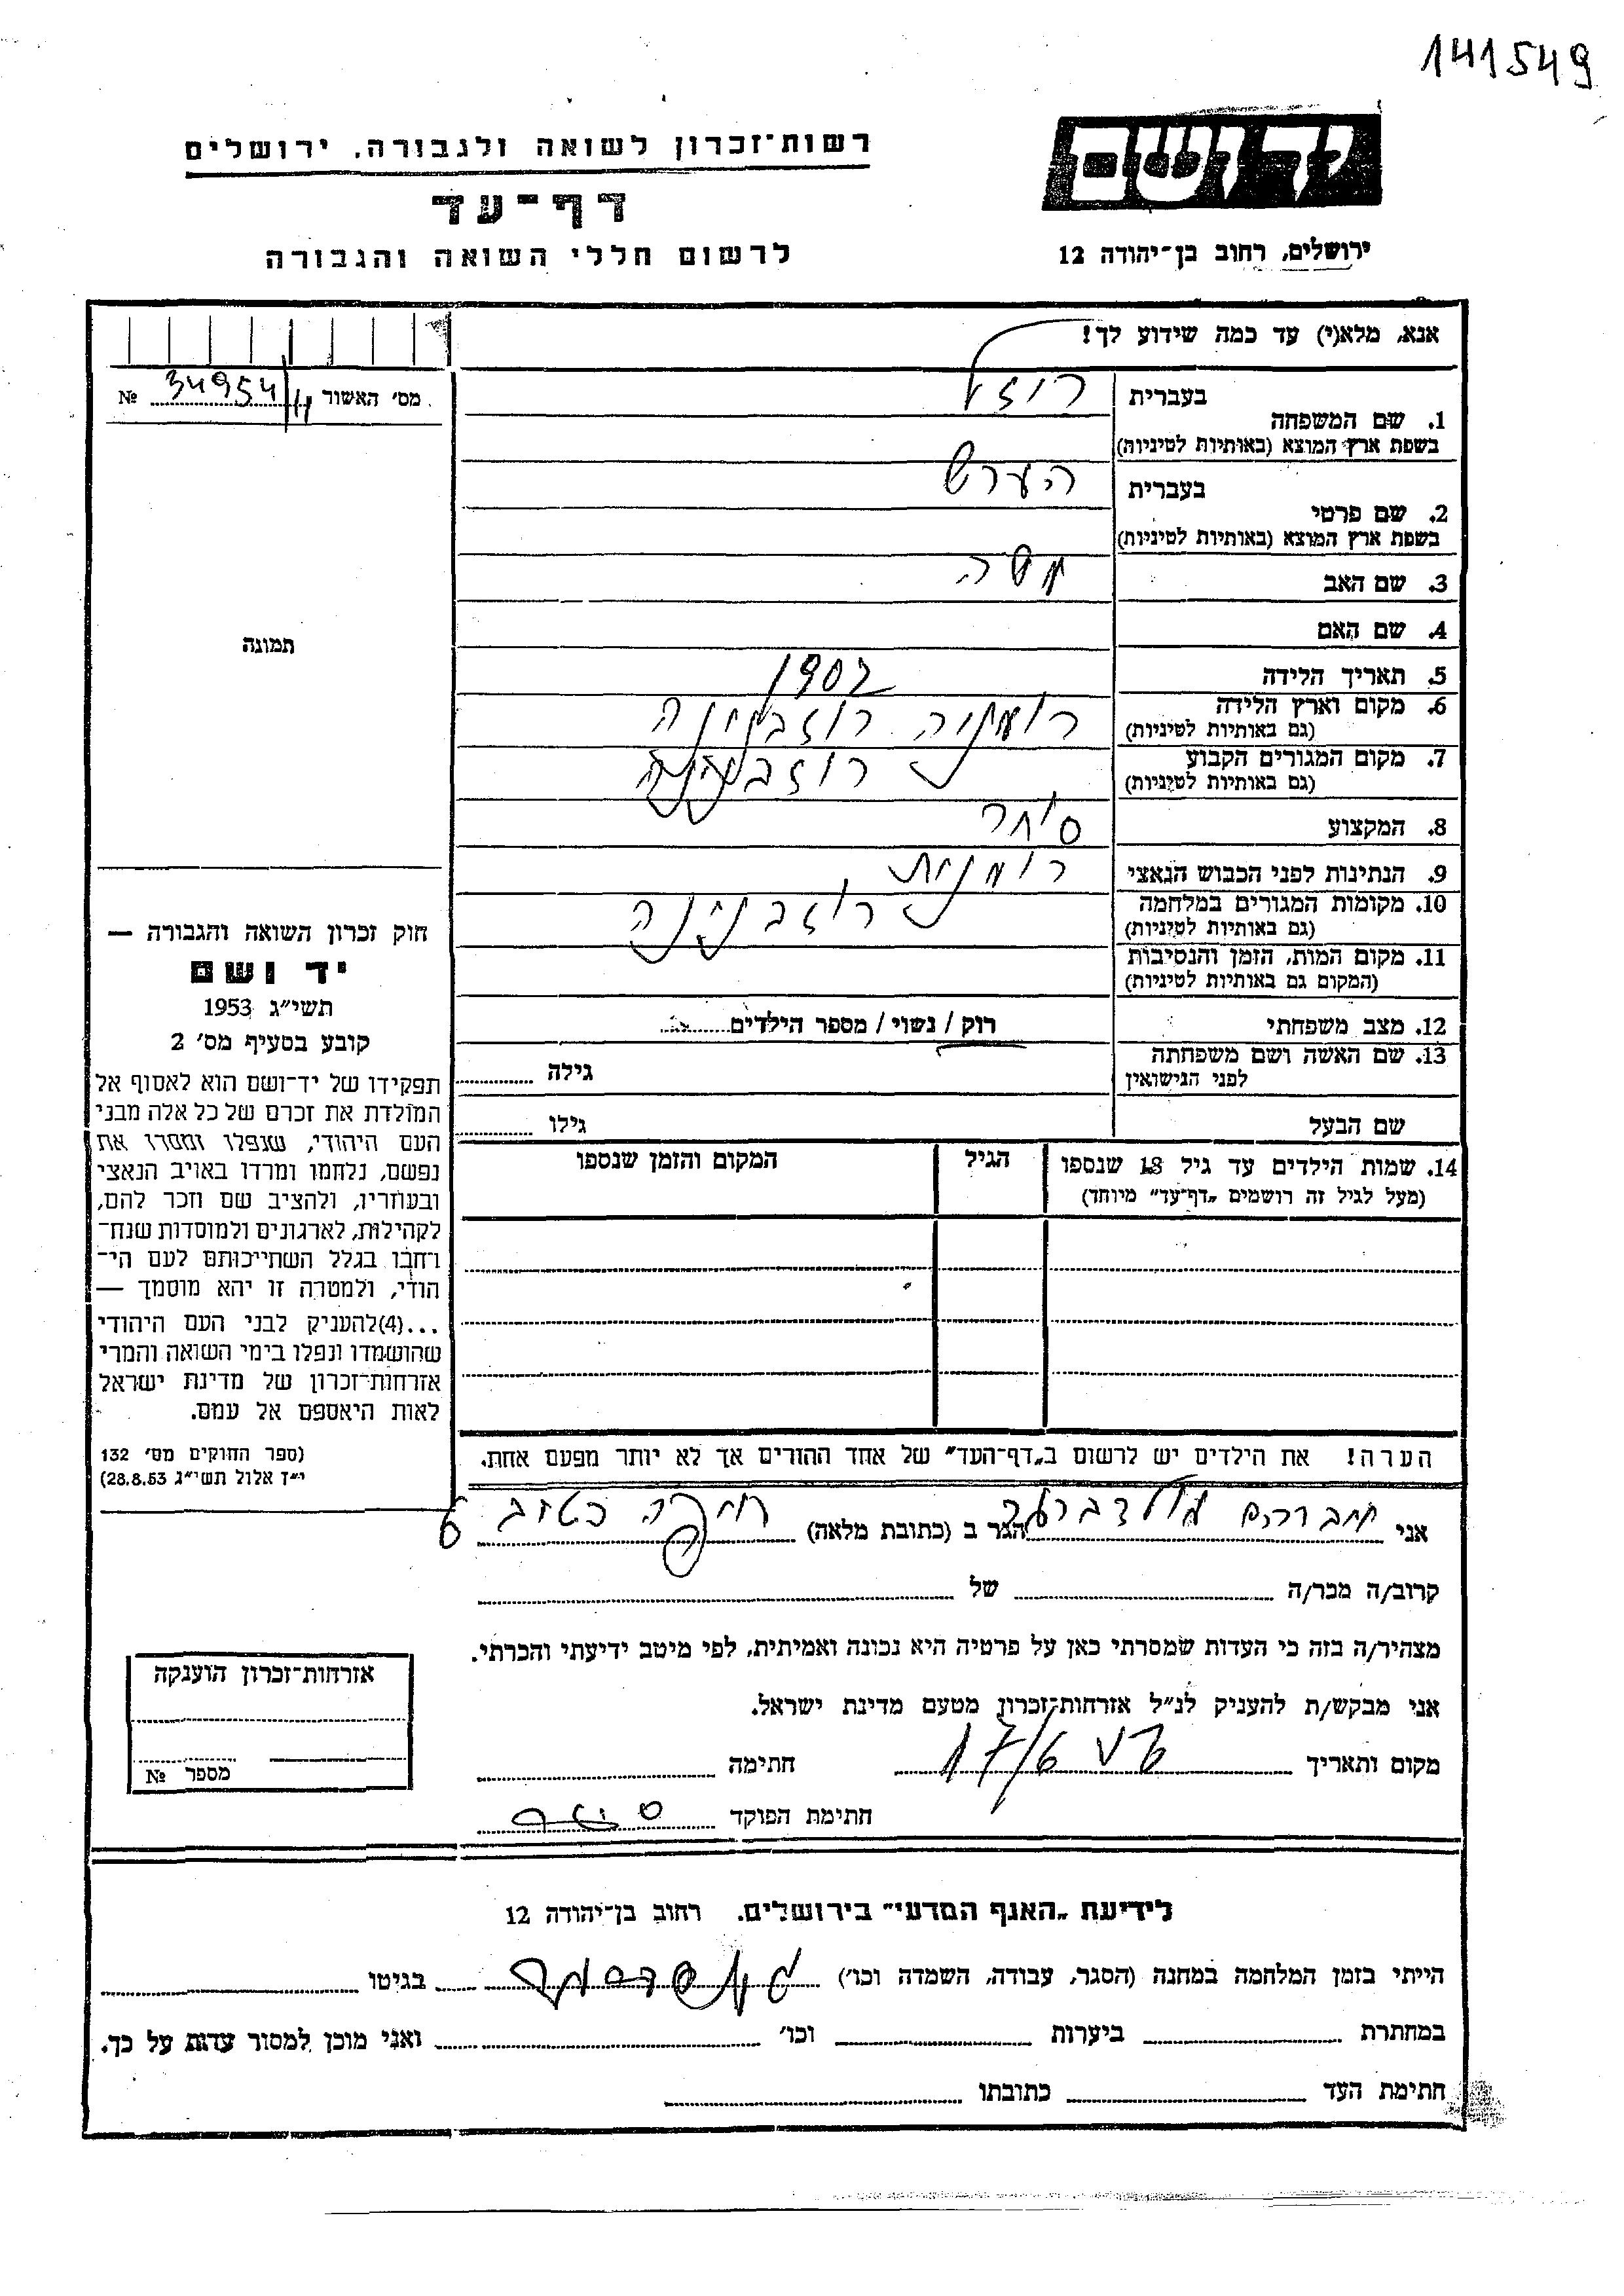 141549
רשות־זכרון לשואה ולגבורה, ירושלים
יד ושם
דף־עד
לרשום חללי השואה והגבורה
ירושלים, רחוב בן־יהודה 12
אנא, מלא(י) עד כמה שידוע לך!
מס׳ האשור 34954 №
תמונה
1. שם המשפחה
בעברית
בשפת ארץ המוצא (באותיות לטיניות)
2. שם פרטי
בעברית הערש
בשפת ארץ המוצא (באותיות לטיניות)
3. שם האב משה
4. שם האם
5. תאריך הלידה 1902
6. מקום וארץ הלידה
(גם באותיות לטיניות)
7. מקום המגורים הקבוע
(גם באותיות לטיניות)
8. המקצוע סוחר
9. הנתינות לפני הכבוש הנאצי רומנית
10. מקומות המגורים במלחמה
(גם באותיות לטיניות)
11. מקום המות, הזמן והנסיבות
(המקום גם באותיות לטיניות)
12. מצב משפחתי רוק / נשוי / מספר הילדים
13. שם האשה ושם משפחתה
לפני הנישואין גילה
שם הבעל גילו
14. שמות הילדים עד גיל 18 שנספו הגיל המקום והזמן שנספו
(מעל לגיל זה רושמים „דף־עד” מיוחד)
הערה! את הילדים יש לרשום ב„דף־העד” של אחד ההורים אך לא יותר מפעם אחת.
חוק זכרון השואה והגבורה —
יד ושם
תשי״ג 1953
קובע בסעיף מס׳ 2
תפקידו של יד־ושם הוא לאסוף אל
המולדת את זכרם של כל אלה מבני
העם היהודי, שנפלו ומסרו את
נפשם, נלחמו ומרדו באויב הנאצי
ובעוזריו, ולהציב שם וזכר להם,
לקהילות, לארגונים ולמוסדות שנח־
רבו בגלל השתייכותם לעם הי־
הודי, ולמטרה זו יהא מוסמך —
...(4)להעניק לבני העם היהודי
שהושמדו ונפלו בימי השואה והמרי
אזרחות־זכרון של מדינת ישראל
לאות היאספם אל עמם.
(ספר החוקים מס׳ 132
י״ז אלול תשי״ג 28.8.53)
אני אברהם גולדברגר הגר ב (כתובת מלאה) חיפה
קרוב/ה מכר/ה של
מצהיר/ה בזה כי העדות שמסרתי כאן על פרטיה היא נכונה ואמיתית, לפי מיטב ידיעתי והכרתי.
אני מבקש/ת להעניק לנ״ל אזרחות־זכרון מטעם מדינת ישראל.
מקום ותאריך 17/6 חתימה
חתימת הפוקד
אזרחות־זכרון הוענקה
מספר №
לידיעת „האגף המדעי” בירושלים, רחוב בן־יהודה 12
הייתי בזמן המלחמה במחנה (הסגר, עבודה, השמדה וכו׳) בגיטו
במחתרת ביערות וכו׳ ואני מוכן למסור עדות על כך.
חתימת העד כתובתו